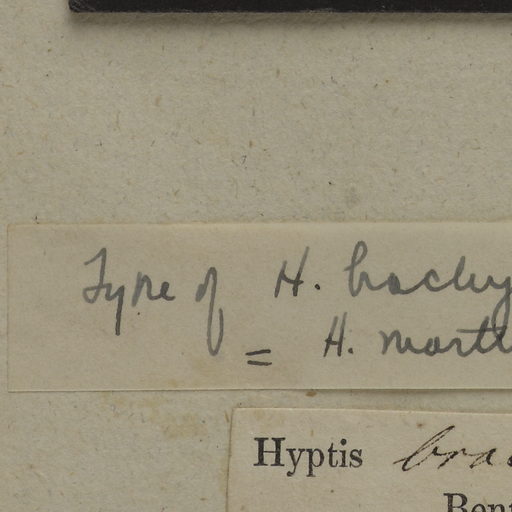 Type of H. brachy
= H. mart
Hyptis bra
Bent